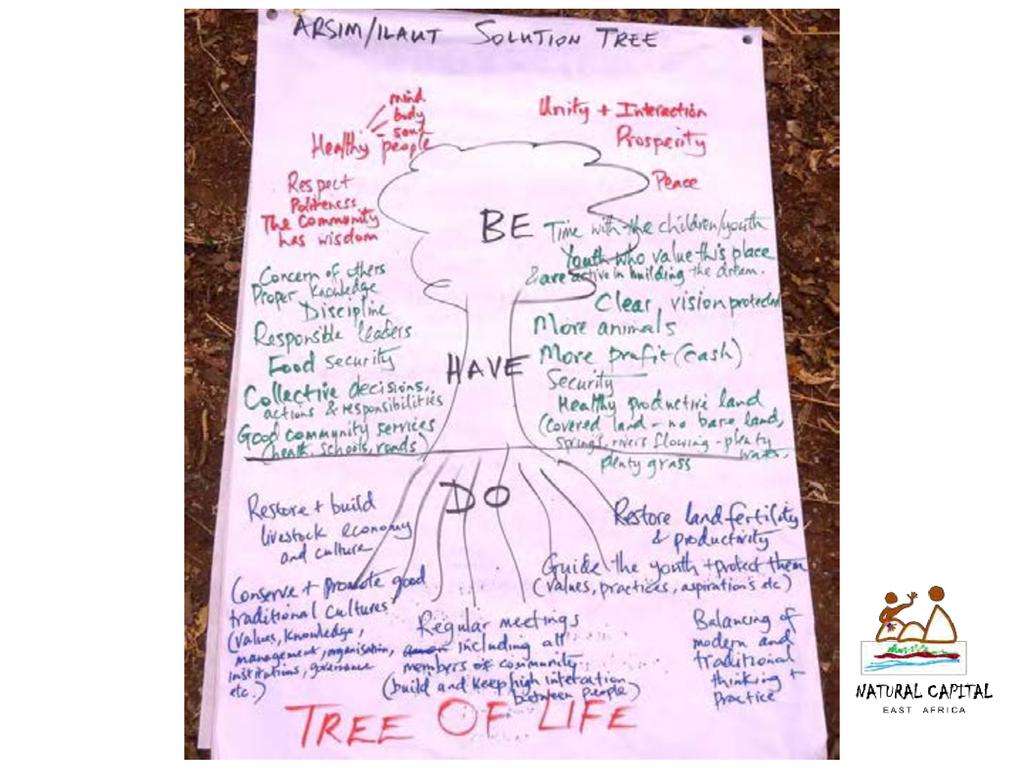 ARSIM/ILAUT SOLUTION TREE
mind
body
soul
Healthy people
Unity + Interaction
Prosperity
Peace
Respect
Politeness
The Community
has wisdom
BE
Time with the children/youth
Youth who value this place
& are active in building the dream.
Clear vision protected
More animals
More profit (cash)
Security
Healthy productive land
(covered land - no bare land,
springs, rivers flowing - plenty
water,
plenty grass
Concern of others
Proper knowledge
Discipline
Responsible leaders
Food security
Collective decisions,
actions & responsibilities
Good community services
(health, schools, roads)
HAVE
DO
Restore + build
livestock economy
and culture
Restore land fertility
& productivity
Guide the youth + protect them
(values, practices, aspirations etc)
Conserve + promote good
traditional cultures
(values, knowledge,
management, organisation,
institutions, governance
etc.)
Regular meetings
including all
members of community
(build and keep high interaction
between people)
Balancing of
modern and
traditional
thinking +
practice
TREE OF LIFE
NATURAL CAPITAL
EAST AFRICA